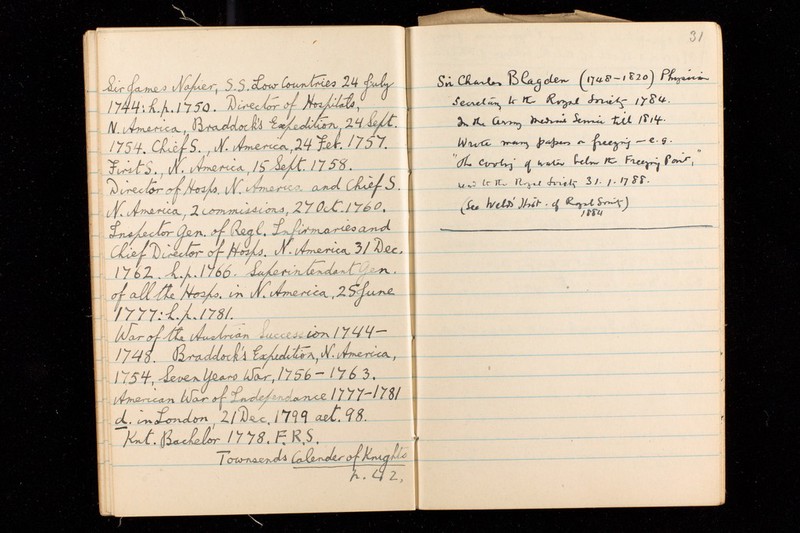 Sir James Napier, S.S. Low Countries 24 July
1744: h.p. 1750. Director of Hospitals,
N. America, Braddock's Expedition, 24 Sept.
1754. Chief S., N. America, 24 Feb. 1757.
First S., N. America, 15 Sept. 1758.
Director of Hosps. N. America and Chief S.
N. America, 2 commissions, 27 Oct. 1760.
Inspector Gen. of Regl. Infirmaries and
Chief Director of Hosps. N. America 31 Dec.
1762. h.p. 1766. Superintendant Gen.
of all the Hosps. in N. America, 25 June
1777: h.p. 1781.
War of the Austrian Succession 1744-
1748. Braddock's Expedition, N. America,
1754, Seven Years War, 1756-1763.
American War of Independance 1777-1781
d. in London, 21 Dec. 1799 aet. 98.
Knt. Bachelor 1778. F.R.S.
Townsends Calender of Knights
p. 42.
31
Sir Charles Blagden (1748-1820) Physician
Secretary to the Royal Society 1784.
In the Army Medical Service till 1814.
Wrote many papers on freezing - e.g.
"The Cooling of water below the Freezing Point,"
read to the Royal Society 31.1.1788.
(See Weld's Hist. of Royal Society)